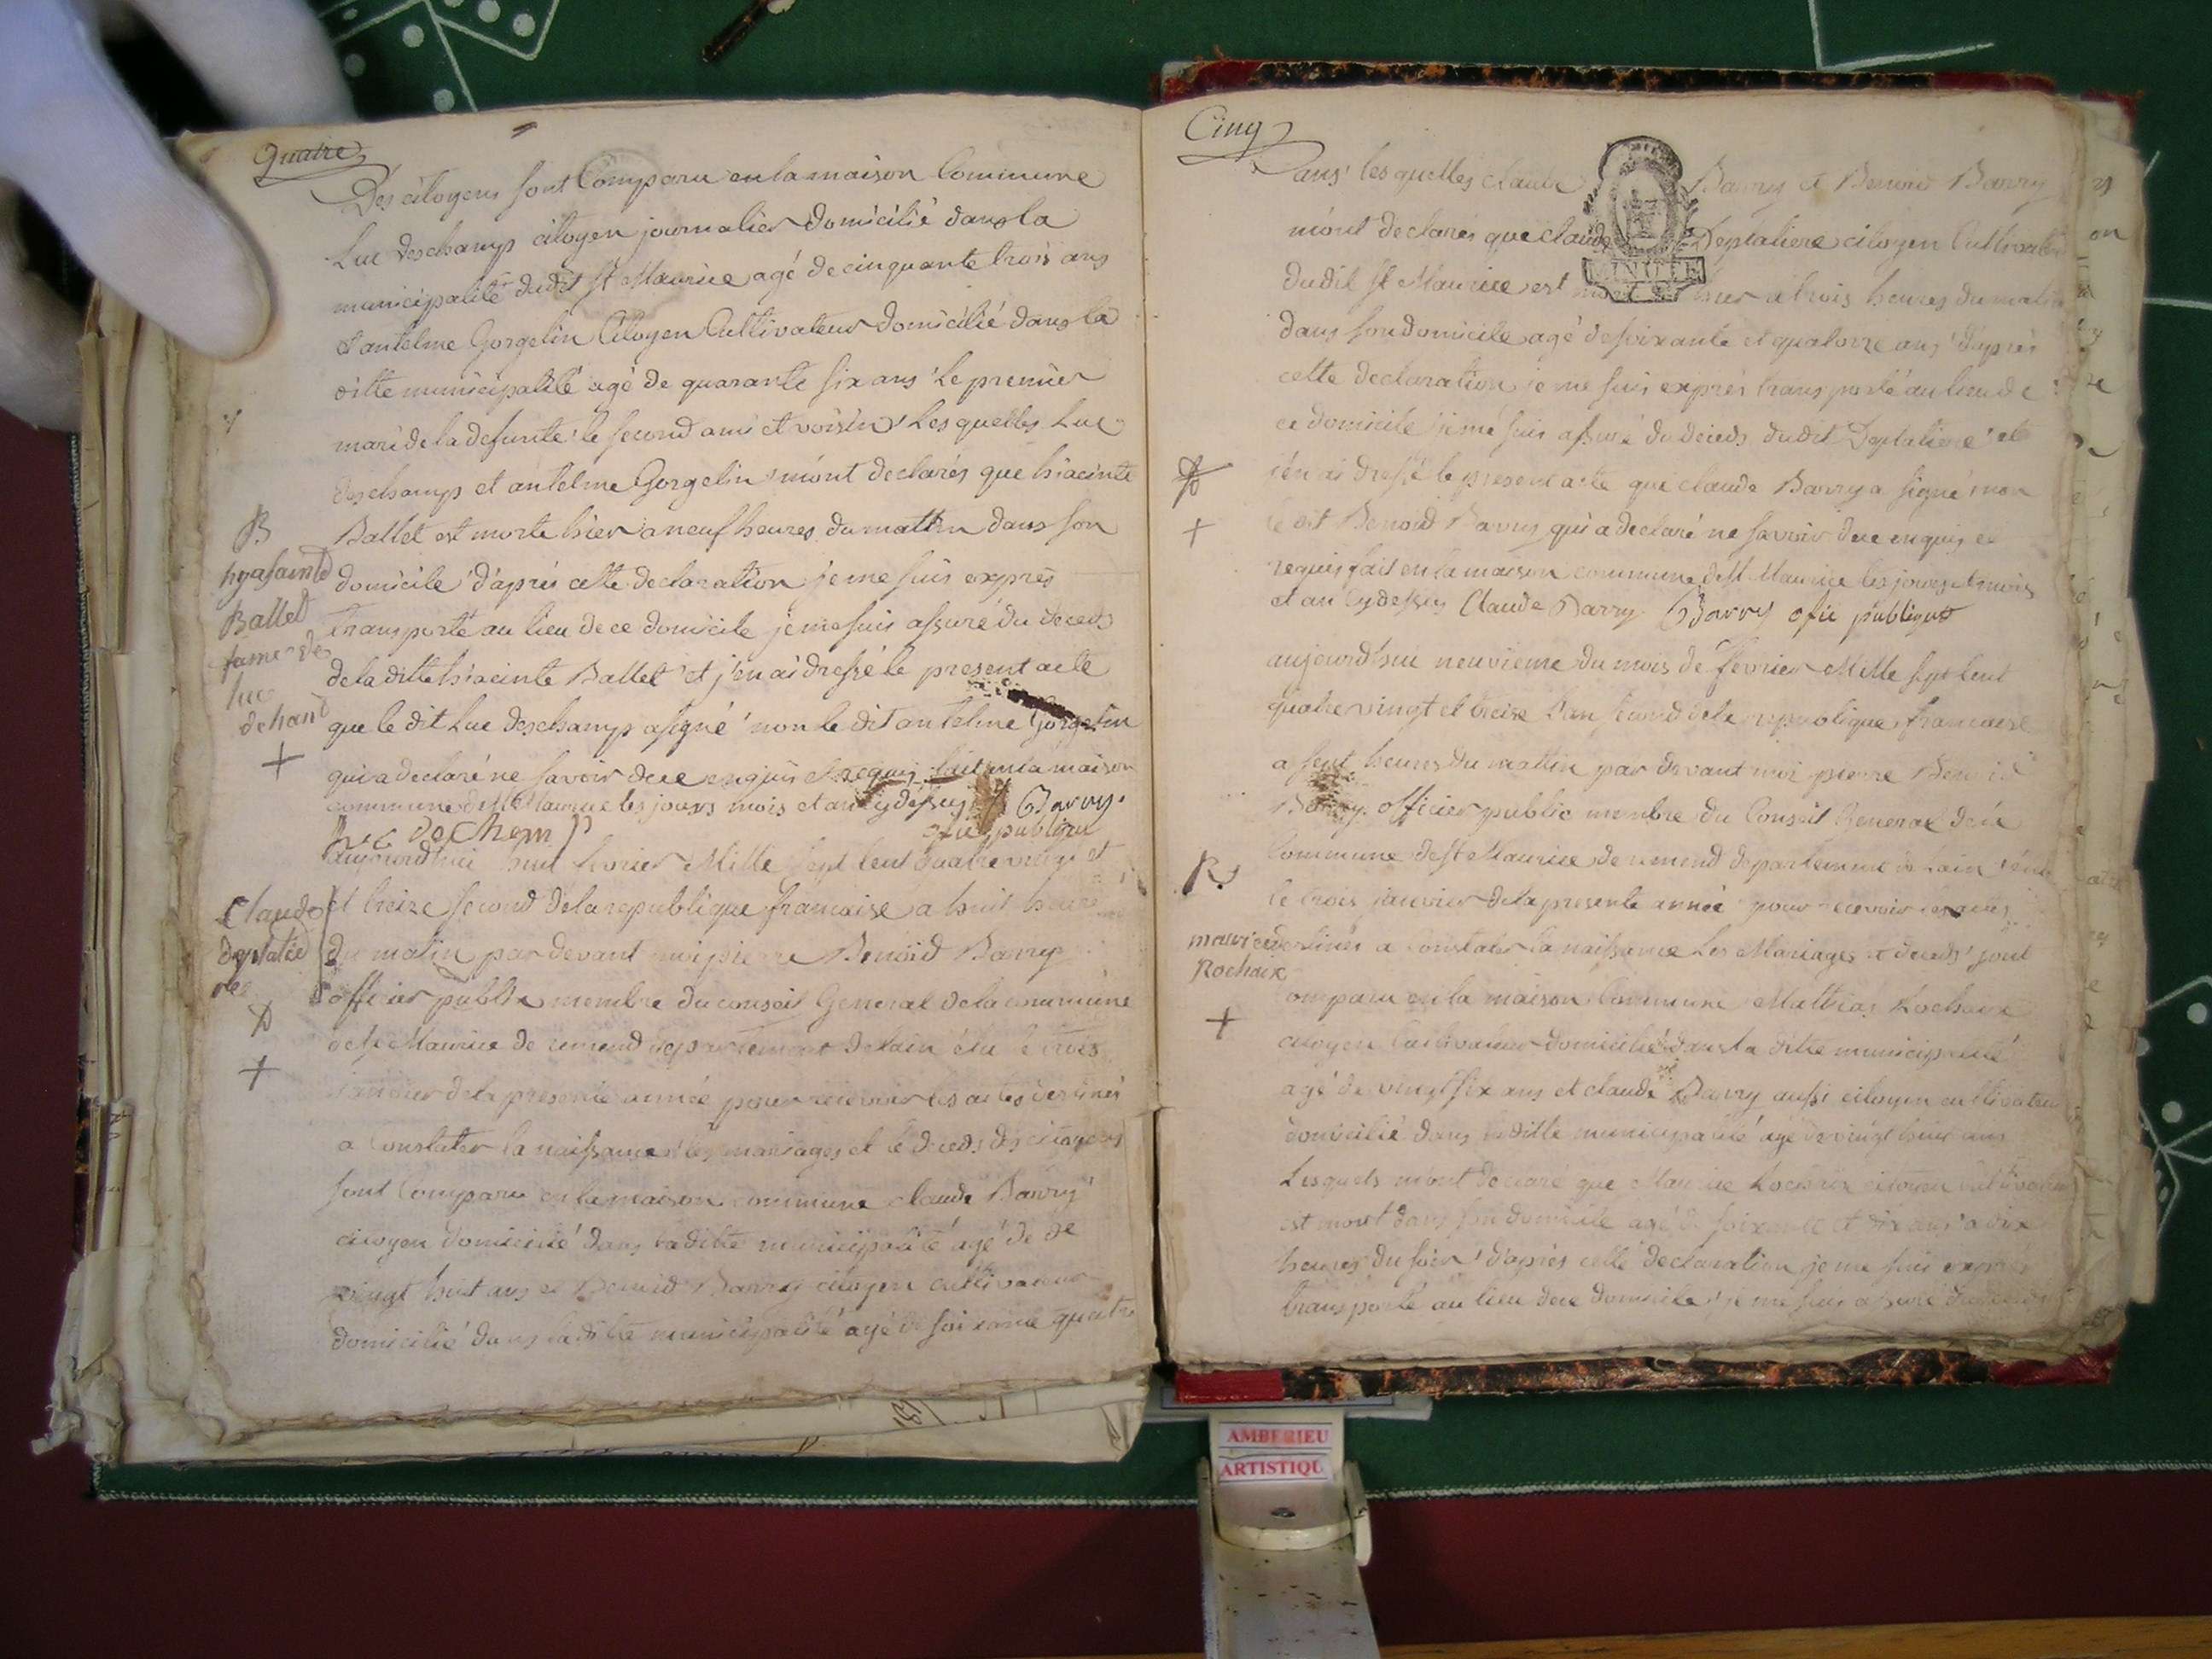 Quatre
Des citoyens sont Comparu en la maison Commune
Luc deschamps citoyen journalier domicilié dans la
municipalité dudit St Maurice agé de cinquante trois ans
et antelme Gorgelin Citoyen Cultivateur domicilié dans la
ditte municipalité agé de quarante six ans Le premier
mari de la defunte le second ami et voisin Les quelles Luc
deschamps et antelme Gorgelin m'ont declarés que hiacinte
Ballet est morte hier a neuf heures du mattin dans son
domicile d'aprés cette declaration je me suis exprés
transporté au lieu de ce domicile je me suis assuré du deceds
de la ditte hiacinte Ballet et j'en ai dressé le present acte
que le dit Luc deschamps a signé non le dit antelme Gorgelin
qui a declaré ne savoir de ce enquis et requis fait en la maison
commune de St Maurice les jours mois et an cy dessus Barry
ofic publique
Luc decham
B
hyasainte
Ballet
fame de
luc
dehant
+
aujourdhui huit fevrier Mille sept Cent quatre vingt et
et treize second de la republique francaise a huit heures
du matin par devant moi pierre Benoid Barry
officier public membre du conseil General de la commune
de St Maurice de remend departement de lain élu le trois
janvier de la presente année pour recevoir les actes destinés
a Constater la naissance les mariages et le deceds des citoyens
sont Comparu en la maison commune claude Barry
citoyen domicilié dans la ditte municipalité agé de de
vingt huit ans et Benoid Barry citoyen cultivateur
domicilié dans la ditte municipalité agé de soixante quatre
Claude
deplatie
res
D
+
Cinq
ans les quelles claude Barry et Benoid Barry
m'ont declarés que claude Deplatiere citoyen Cultivateur
dudit St Maurice est mort hier a trois heures du matin
dans son domicile agé de soixante et quatorze ans d'aprés
cette declaration je me suis exprés transporté au lieu de
ce domicile je me suis assuré du deceds dudit Deplatiere et
j'en ai dressé le present acte que claude Barry a signé non
le dit Benoid Barry qui a declaré ne savoir de ce enquis et
requis fait en la maison commune de St Maurice les jours et mois
et an cy dessus Claude Barry Barry ofic publique
D
+
aujourdhui neuvieme du mois de fevrier Mille sept Cent
quatre vingt et treize l'an second de la republique francaise
a sept heures du mattin par devant moi pierre Benoid
Barry officier public membre du Conseil General de la
Commune de St Maurice de remend departement de lain élu
le trois janvier de la presente année pour recevoir les actes
destinés a Constater la naissance Les Mariages et deceds sont
comparu en la maison Commune Mathias Rochaix
citoyen Cultivateur domicilié dans la ditte municipalité
agé de vingt six ans et claude Barry aussi citoyen cultivateur
domicilié dans la ditte municipalité agé de vingt huit ans
Lesquels m'ont declaré que Maurice Rochaix citoyen cultivateur
est mort dans son domicile agé de soixante et dix ans a dix
heures du soir d'aprés cette declaration je me suis exprés
transporté au lieu de ce domicile je me suis assuré du deceds
R
maurice
Rochaix
+
MINUTE
AMBERIEU
ARTISTIQU